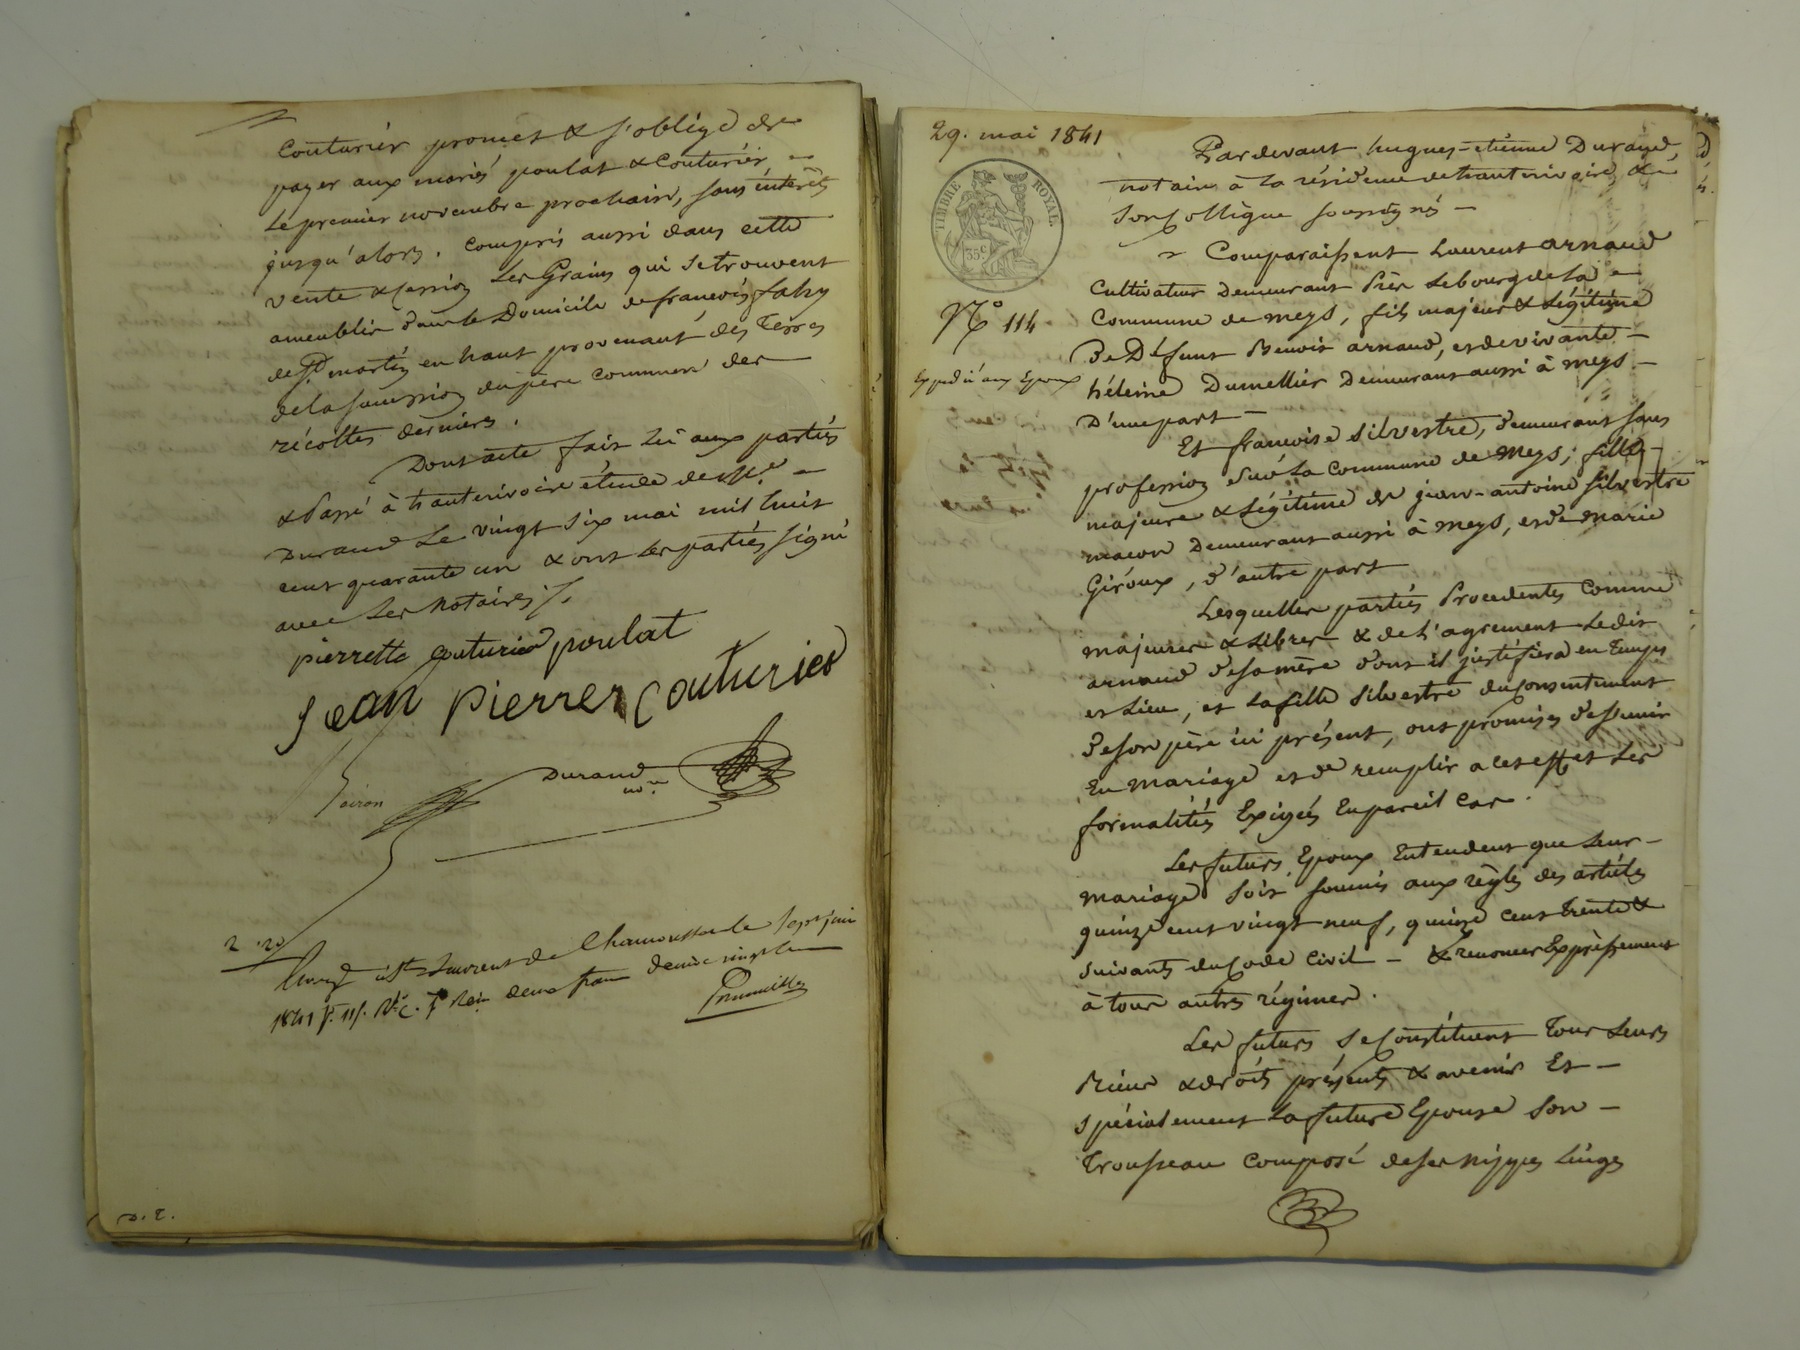 Couturier promet & s'oblige de
payer aux mariés poulat & Couturier,
Le premier novembre prochain, sans intérêts
jusqu'alors. compris aussi dans cette
vente & Cession Les Grains qui se trouvent
ameublir dans le Domicile de francois faby
de St. martin en haut provenant des Terres
de la Succession du père commun des
récoltes dernieres.
Dont acte fait Lû aux parties
& Passé à hauterivoire étude de Me.
Durand Le vingt six mai mil huit
cent quarante un & ont les parties signé
avec Les Notaires /.
pierrette couturier poulat
Jean pierre Couturier
Durand
nore.
2.20
Enregé à St. Laurent de Chamousset le sept juin
1841 fo. 115. Ro. C. 7 Reçu deux francs décime vingt c.
D. 2.
29. mai 1841
TIMBRE ROYAL.
35 c.
No. 114
Expédié aux Epoux
Pardevant hugues-etienne Durand,
notaire à la résidence de hauterivoire, &
son Collègue soussignés
Comparaissent Laurent arnaud
Cultivateur Demeurant Près Le bourg de la
Commune de meys, fils majeur & Légitime
De Défunt Benoit arnaud, et de vivante
héleine Dumellier Demeurant aussi à meys
D'une part
Et francoise Silvestre, demeurant sans
profession sur la Commune de Meys; fille
majeure & Légitime de jean-antoine Silvestre
macon Demeurant aussi à meys, et de marie
Giroux, d'autre part
Lesquelles parties Procedentes comme
majeures & Libres & de l'agrement Ledit
arnaud de sa mère dont il justifiera en Temps
et Lieu, et La fille Silvestre du Consentement
de son père ici présent, ont promis de s'unir
En mariage et de remplir a cet effet Les
formalités Exigés En pareil Cas.
Les futurs Epoux Entendent que Leur
mariage soit soumis aux règles des articles
quinze cent vingt neuf, quinze cent Trente &
suivants du Code Civil — & renoncer Expressement
à tous autres régimes.
Les futurs se Constituent Tous Leurs
Biens & droits présents & avenir Et
spécialement La future Epouse son
Trousseau composé de ses nippes Linges